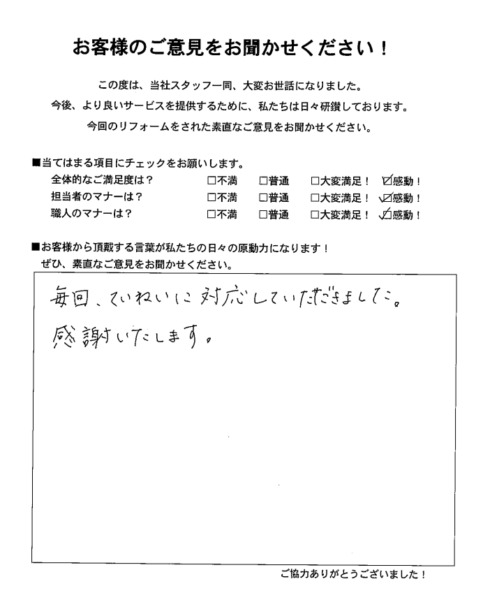 お客様のご意見をお聞かせください！
この度は、当社スタッフ一同、大変お世話になりました。
今後、より良いサービスを提供するために、私たちは日々研鑽しております。
今回のリフォームをされた素直なご意見をお聞かせください。
■当てはまる項目にチェックをお願いします。
全体的なご満足度は？ □不満 □普通 □大変満足！ ☑感動！
担当者のマナーは？ □不満 □普通 □大変満足！ ☑感動！
職人のマナーは？ □不満 □普通 □大変満足！ ☑感動！
■お客様から頂戴する言葉が私たちの日々の原動力になります！
ぜひ、素直なご意見をお聞かせください。
毎回、ていねいに対応していただきました。
感謝いたします。
ご協力ありがとうございました！